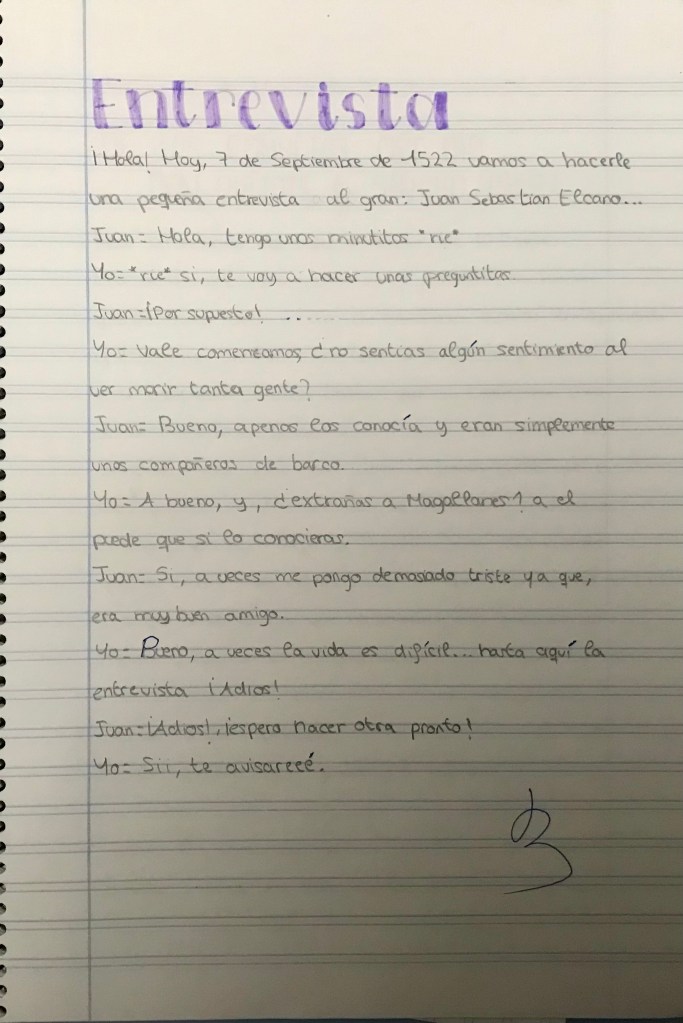 Entrevista
¡Hola! Hoy, 7 de Septiembre de 1522 vamos a hacerle
una pequeña entrevista al gran: Juan Sebastian Elcano...
Juan= Hola, tengo unos minutitos *rie*
Yo=*rie* si, te voy a hacer unas preguntitas.
Juan=¡Por supuesto! .....
Yo= Vale comenzamos, ¿no sentias algún sentimiento al
ver morir tanta gente?
Juan= Bueno, apenas los conocía y eran simplemente
unos compañeros de barco.
Yo= A bueno, y, ¿extrañas a Magallanes? a el
puede que si lo conocieras.
Juan= Si, a veces me pongo demasiado triste ya que,
era muy buen amigo.
Yo= Bueno, a veces la vida es difícil... hasta aquí la
entrevista ¡Adios!
Juan=¡Adios!, ¡espero hacer otra pronto!
Yo= Sii, te avisareeé.